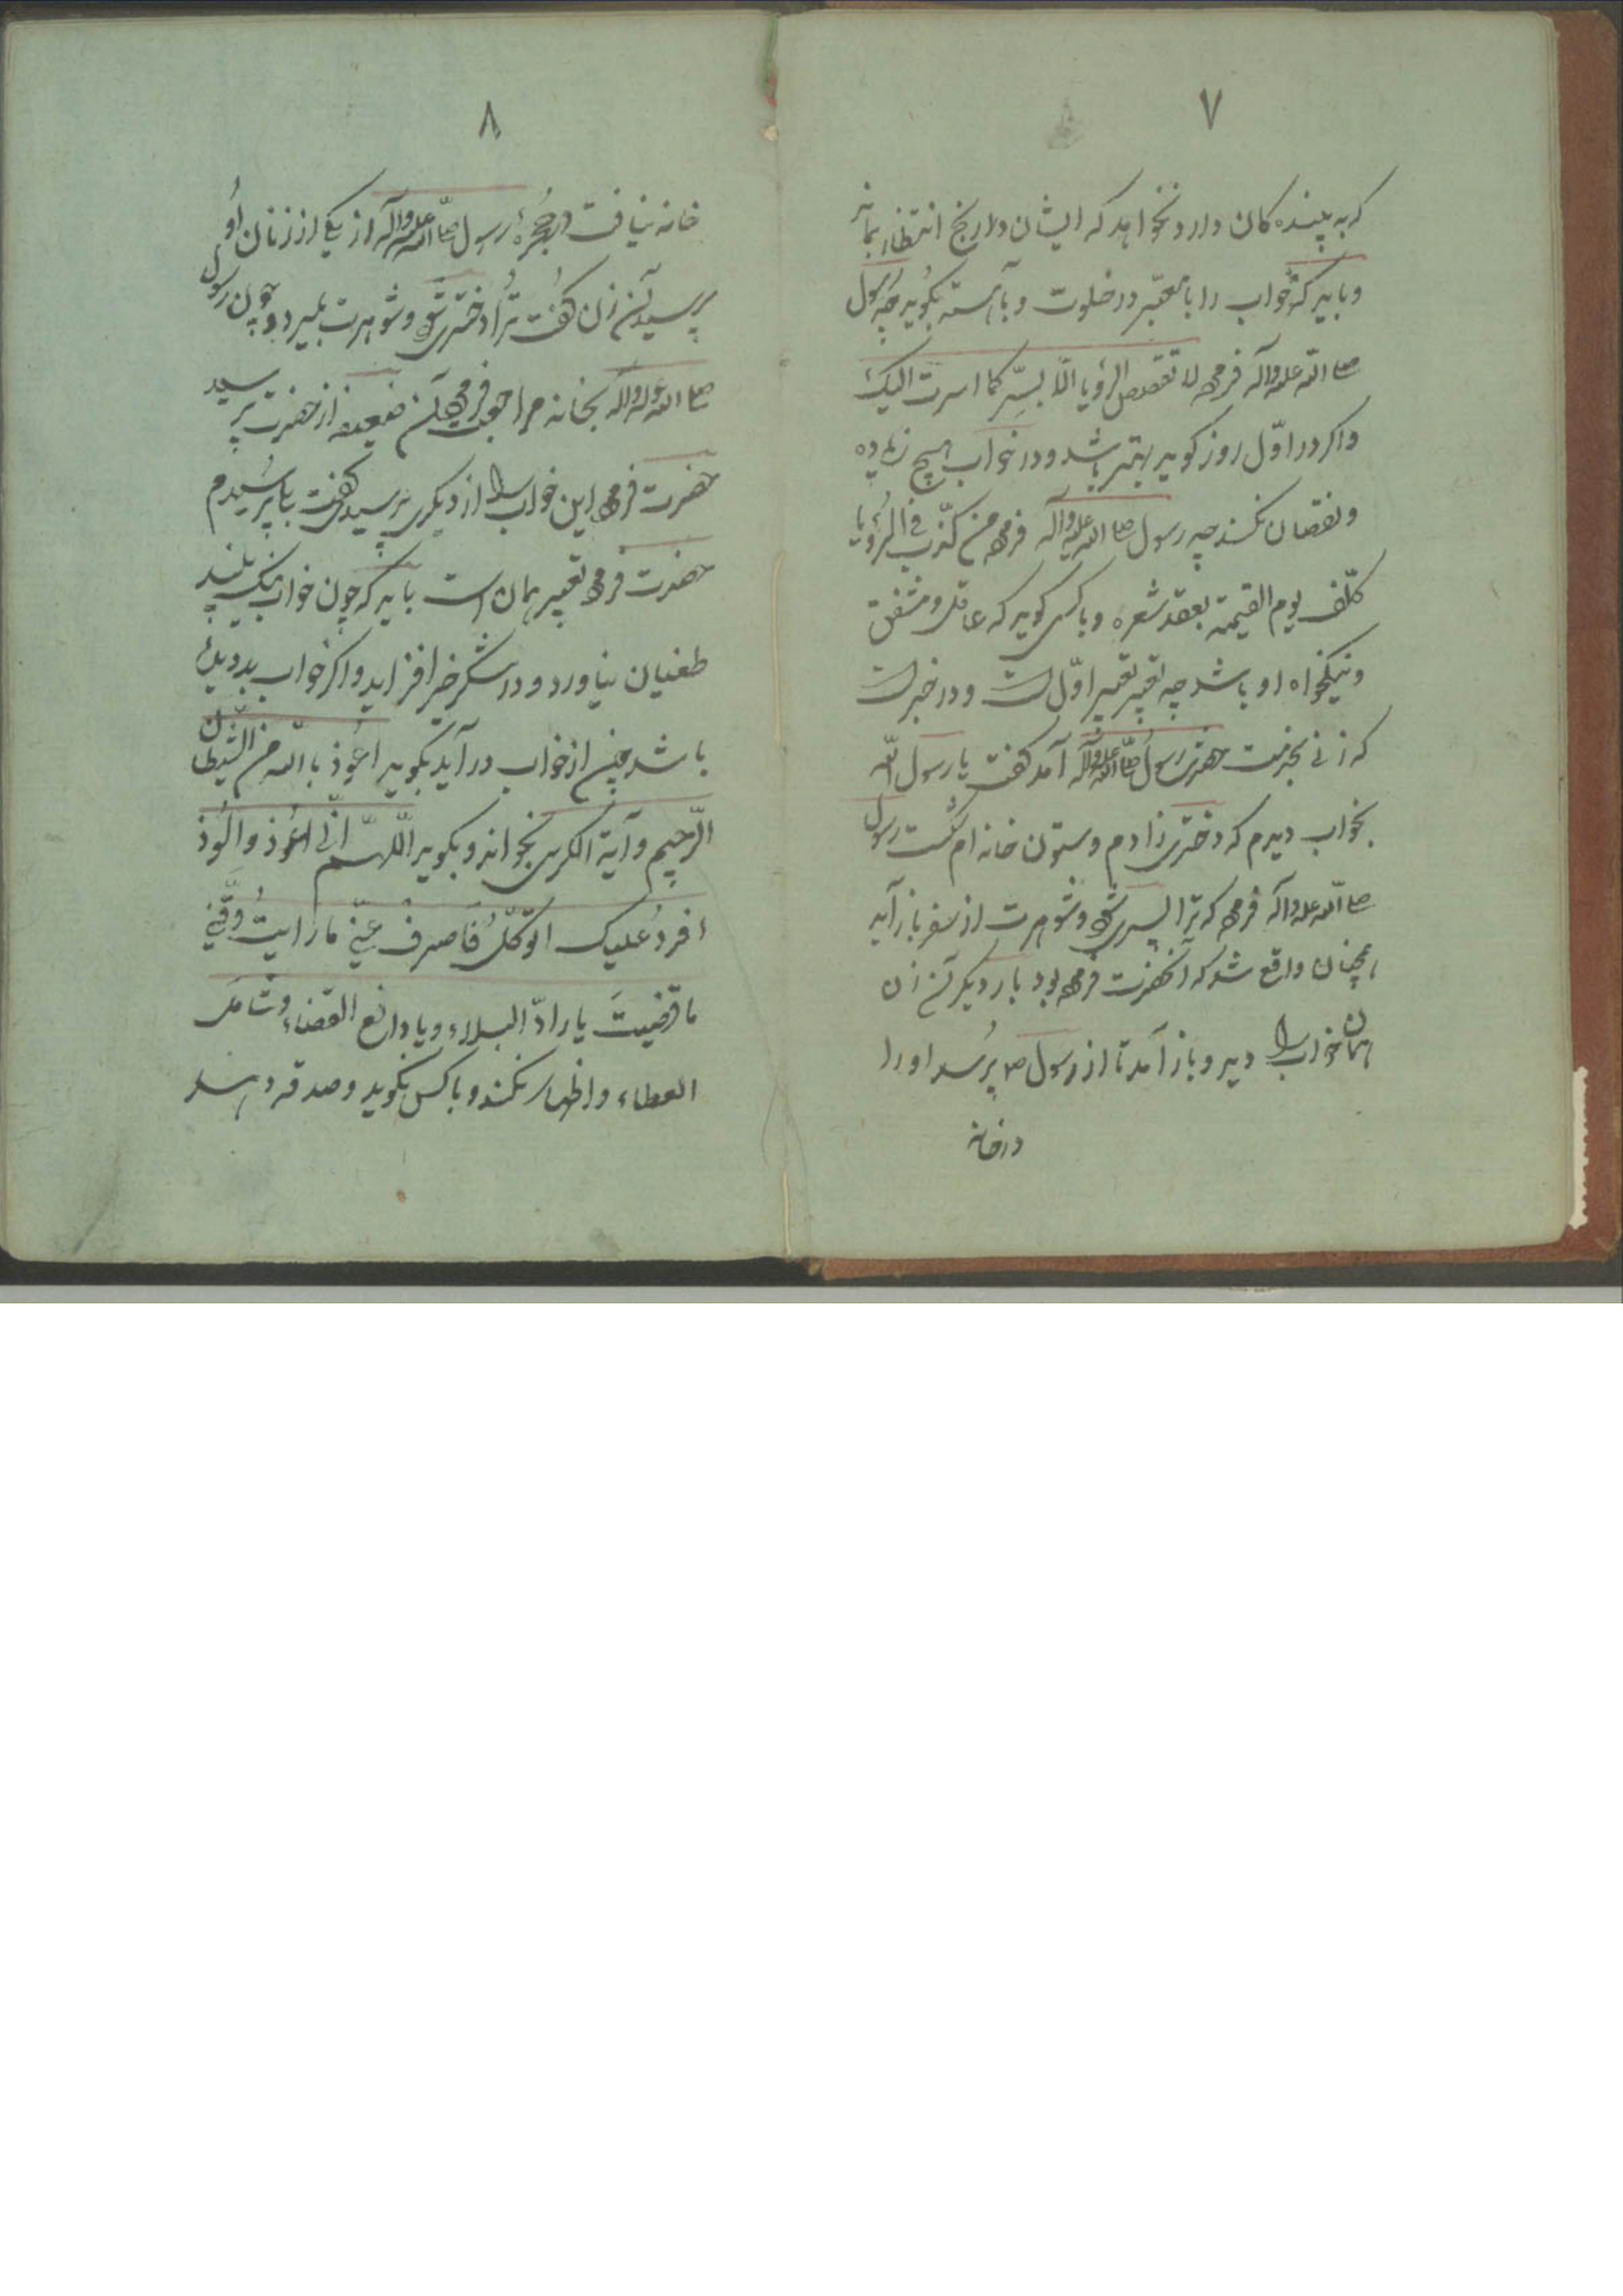 ۷
که به بیننده کمان دارد و نخواهد که ایشان در رنج انتظار بماند
و باید که خواب را با معبّر در خلوت و باهسته بگوید چه رسول
صلی الله علیه وآله فرموده لا تقصص الرؤیا الا بسرّ کما اسرت الیک
واکر در اوّل روز کوید بهتر باشد و در خواب هیچ زیاده
و نقصان نکند چه رسول صلی الله علیه وآله فرموده من کذّب فی الرؤیا
کلّف یوم القیمة بعقد شعره و باکسی کوید که عاقل و مشفق
و نیکخواه او باشد چه تعبیر تعبیر اوّل است و در خبر است
که زنی بخدمت حضرت رسول صلّی الله علیه وآله آمد کفت یا رسول الله
بخواب دیدم که دختری زادم و ستون خانه ام شکست رسول
صلی الله علیه وآله فرمود که ترا پسری شود و شوهرت از سفر باز آید
همچنان واقع شد که آنحضرت فرموده بود بار دیکر آن زن
همان خواب را دید و باز آمد تا از رسول ص پرسد او را
در خانه
۸
خانه نیافت در حجرهٔ رسول صلّی الله علیه وآله از یکی از زنان او
پرسید آن زن کفت ترا دختری شود و شوهرت بمیرد و چون رسول
صلی الله علیه وآله بخانه مراجعت فرمود آن ضعیفه از حضرت پرسید
حضرت فرمود این خواب را از دیکری پرسیدی کفت بلی پرسیدم
حضرت فرمود تعبیر همان است باید که چون خواب نیک بیند
طغیان نیاورد و در شکر خیر افزاید واکر خواب بد دیده
باشد چون از خواب در آید بگوید اعوذ بالله من الشیطان
الرّجیم و آیة الکرسی بخواند و بکوید اللّهمّ انّی اعوذ والوذ
افرد علیک اتوکّل فاصرف عنّی ما رایت وقّنی
ما قضیت یا رادّ البلاء و یا دافع القضاء و شامل
العطاء و اظهار نکند و باکس نکوید و صدقه دهد